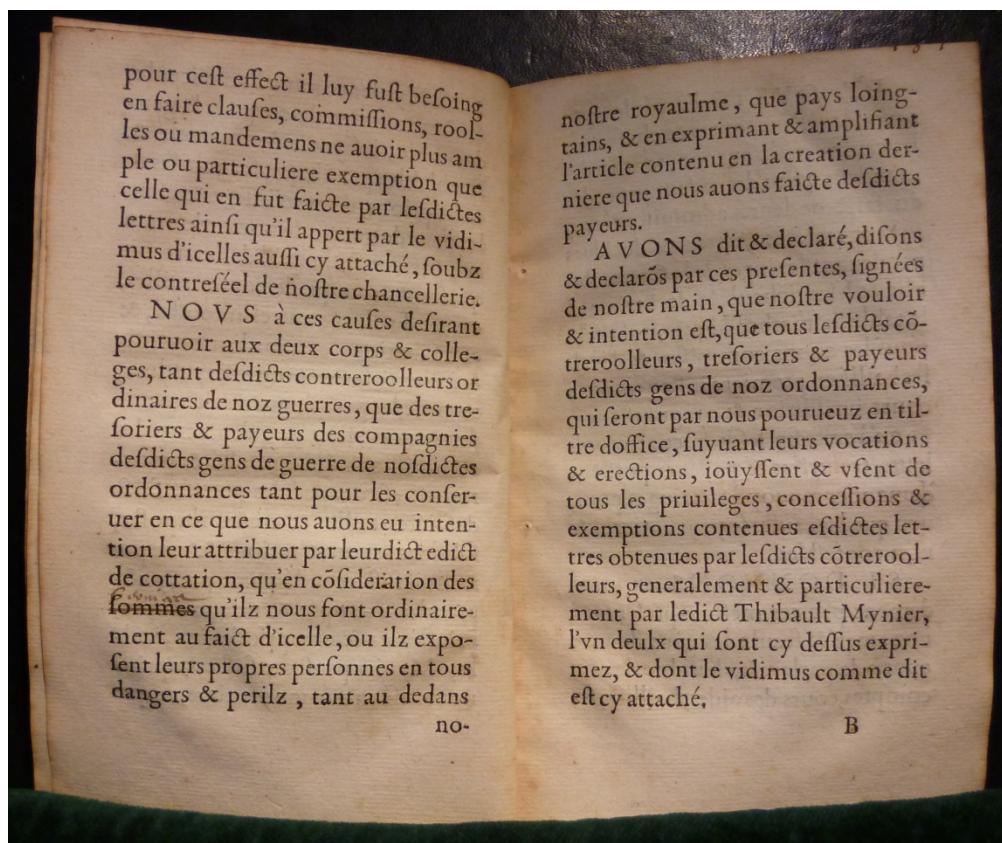 pour ceſt effect il luy fuſt beſoing
en faire clauſes, commiſſions, rool-
les ou mandemens ne auoir plus am
ple ou particuliere exemption que
celle qui en fut faicte par leſdictes
lettres ainſi qu'il appert par le vidi-
mus d'icelles auſſi cy attaché, ſoubz
le contreſéel de noſtre chancellerie.
NOVS à ces cauſes deſirant
pouruoir aux deux corps & colle-
ges, tant deſdicts contreroolleurs or
dinaires de noz guerres, que des tre-
ſoriers & payeurs des compagnies
deſdicts gens de guerre de noſdictes
ordonnances tant pour les conſer-
uer en ce que nous auons eu inten-
tion leur attribuer par leurdict edict
de cottation, qu'en cõſideration des
ſommes qu'ilz nous font ordinaire-
ment au faict d'icelle, ou ilz expo-
ſent leurs propres perſonnes en tous
dangers & perilz , tant au dedans
no-
noſtre royaulme, que pays loing-
tains, & en exprimant & amplifiant
l'article contenu en la creation der-
niere que nous auons faicte deſdicts
payeurs.
AVONS dit & declaré, diſons
& declarõs par ces preſentes, ſignées
de noſtre main, que noſtre vouloir
& intention eſt, que tous leſdicts cõ-
treroolleurs, treſoriers & payeurs
deſdicts gens de noz ordonnances,
qui ſeront par nous pourueuz en til-
tre doffice, ſuyuant leurs vocations
& erections, ioüyſſent & vſent de
tous les priuileges, conceſſions &
exemptions contenues eſdictes let-
tres obtenues par leſdicts cõtrerool-
leurs, generalement & particuliere-
ment par ledict Thibault Mynier,
l'vn deulx qui ſont cy deſſus expri-
mez, & dont le vidimus comme dit
eſt cy attaché.
B